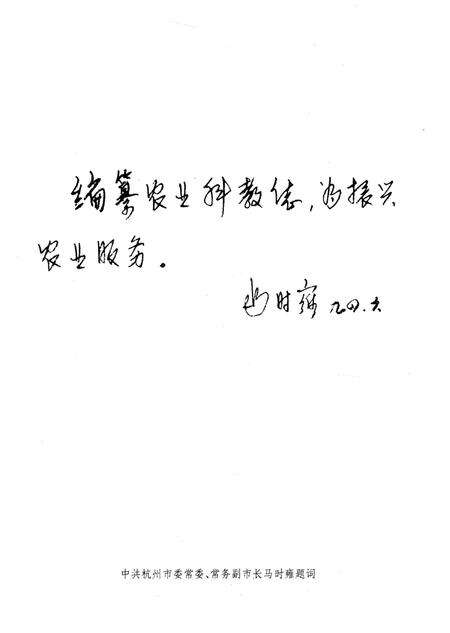 编纂农业科教志，为振兴
农业服务。
马时雍 九四.六
中共杭州市委常委、常务副市长马时雍题词